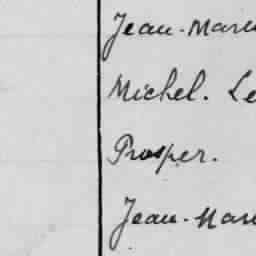 Jean-Marie
Michel. Le
Prosper.
Jean-Marie